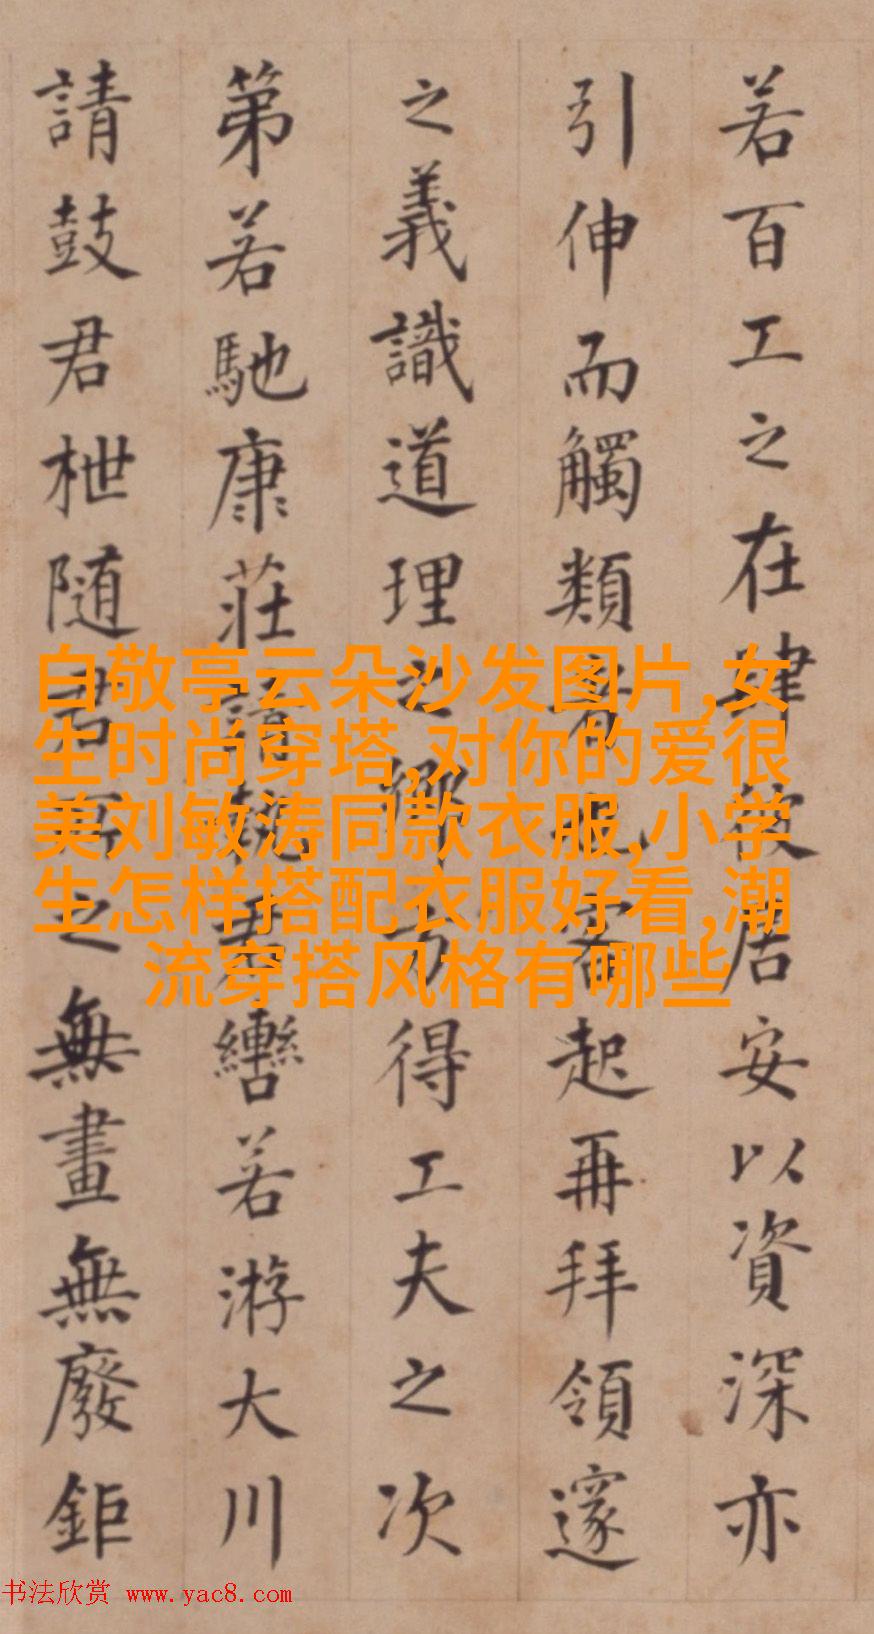 若百工之在肆居安以資深亦
引伸而觸類者也客起再拜領邃
之義識道理之鄉方得工夫之次
第若馳康莊請執君轡若游大川
請鼓君枻随君之無畫無廢鉅
白敬亭云朵沙发图片,女
生时尚穿塔,对你的爱很
美刘敏涛同款衣服,小学
生怎样搭配衣服好看,潮
流穿搭风格有哪些
书法欣赏 www.yac8.com